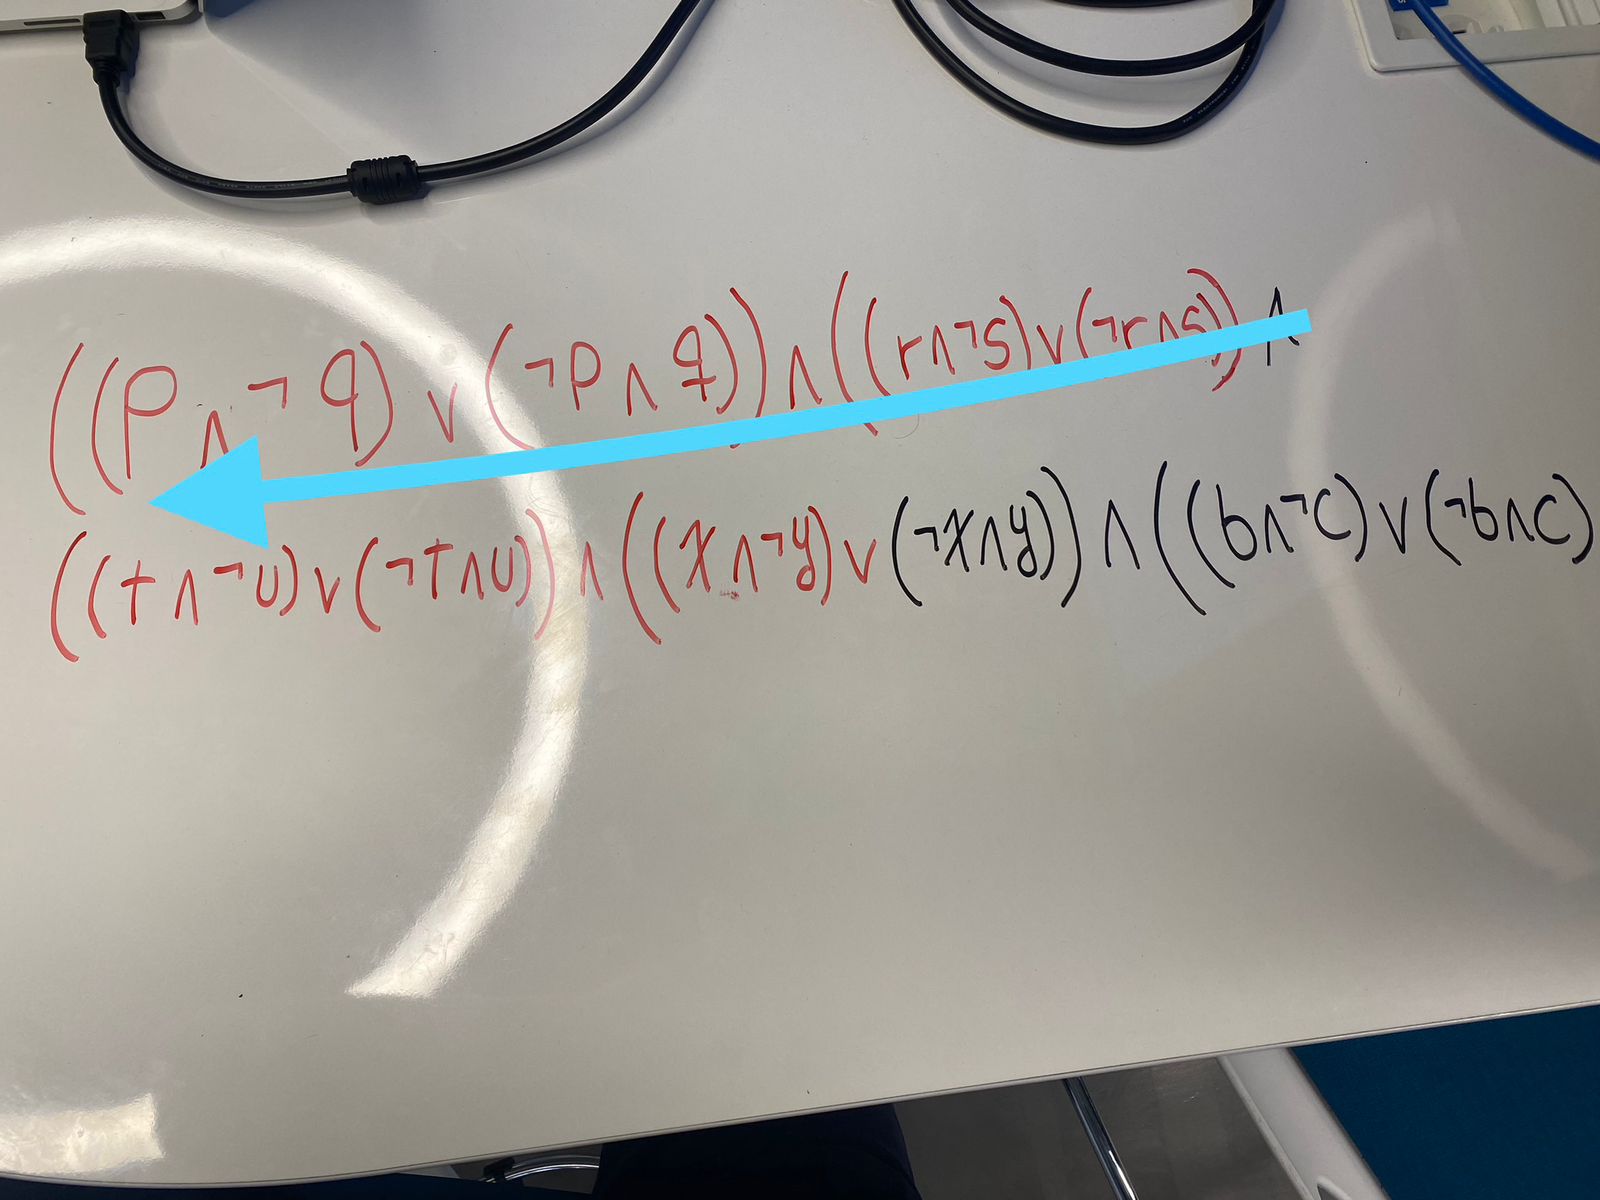 ((p∧¬q)∨(¬p∧q))∧((r∧¬s)∨(¬r∧s))∧
((t∧¬u)∨(¬t∧u))∧((x∧¬y)∨(¬x∧y))∧((b∧¬c)∨(¬b∧c)